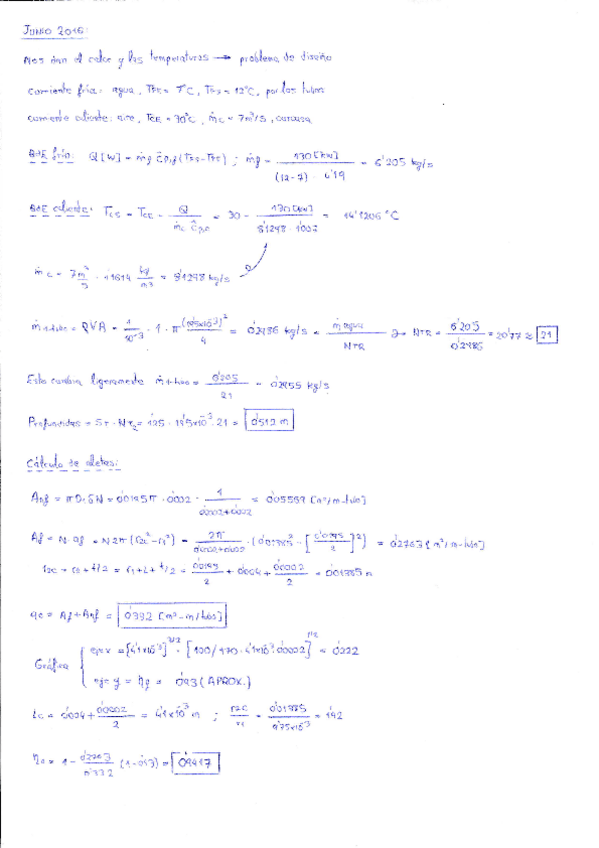 JUNIO 2016:
Nos dan el calor y las temperaturas → problema de diseño
corriente fría: agua, TFE = 7°C, TFS = 12°C, por los tubos
corriente caliente: aire, TCE = 30°C, ṁc = 7m³/s, carcasa
BDE frío: Q[W] = ṁf Ĉp,f (TFS-TFE) ; ṁf = 130[kW] / (12-7) · 4'19 = 6'205 kg/s
BDE caliente: TCS = TCE - Q / ṁc Ĉp,c = 30 - 130[kW] / 8'1298 · 1'007 = 14'1206 °C
ṁc = 7 m³/s · 1'1614 kg/m³ = 8'1298 kg/s
ṁ1 tubo = ρVA = 1/10⁻³ · 1 · π (19'5x10⁻³)²/4 = 0'2986 kg/s = ṁ agua / NTR → NTR = 6'205 / 0'2986 = 20'77 ≈ 21
Esto cambia ligeramente ṁ1 tubo = 6'205 / 21 = 0'2955 kg/s
Profundidad = ST · NTR = 1'25 · 19'5x10⁻³ · 21 = 0'512 m
Cálculo de aletas:
Anf = πD·SN = 0'0195π · 0'002 · 1 / 0'0002+0'002 = 0'05569 [m²/m-tubo]
Af = N · af = N2π(r2c²-r1²) = 2π / 0'0002+0'002 · (0'01385² - [0'0195/2]²) = 0'2763 [m²/m-tubo]
r2c = r2 + t/2 = r1 + L + t/2 = 0'0195/2 + 0'004 + 0'0002/2 = 0'01385 m
ao = Af + Anf = 0'332 [m²-m/tubo]
Gráfica
eje x = [4'1x10⁻³]^3/2 · [100/170 · 4'1x10⁻³ · 0'0002]^1/2 = 0'222
eje y = ηf = 0'93 (APROX.)
Lc = 0'004 + 0'0002/2 = 4'1x10⁻³ m ; r2c/r1 = 0'01385 / 9'75x10⁻³ = 1'42
ηo = 1 - 0'2763/0'332 (1-0'93) = 0'9417